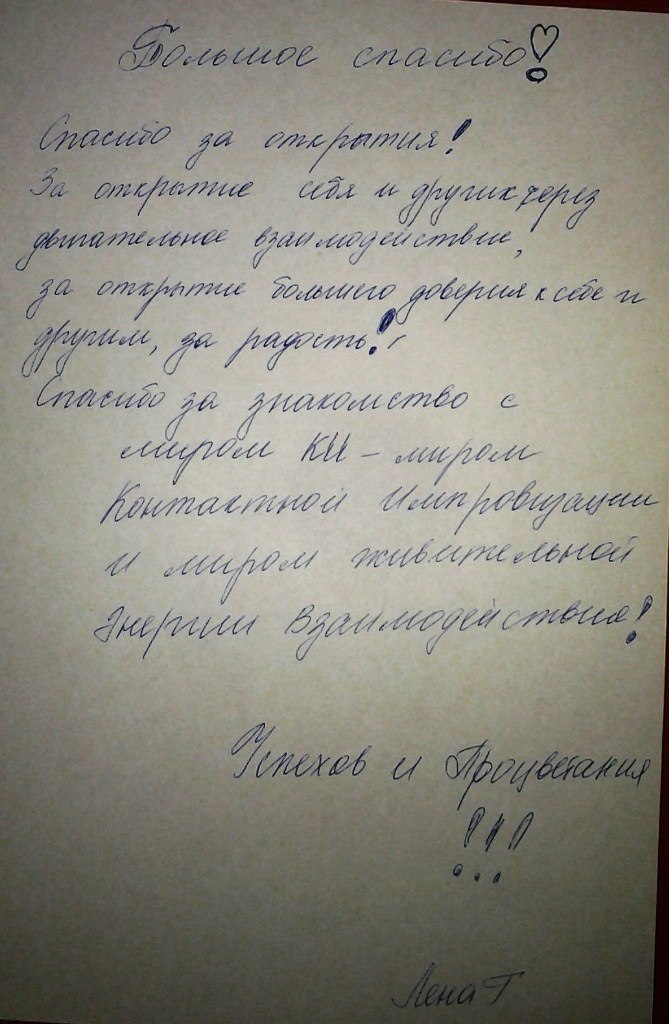 Большое спасибо!
Спасибо за открытия!
За открытие себя и других через
двигательное взаимодействие,
за открытие большего доверия к себе и
другим, за радость!
Спасибо за знакомство с
миром КИ – миром
Контактной Импровизации
и миром живительной
Энергии Взаимодействия!
Успехов и Процветания
!!!
Лена Т